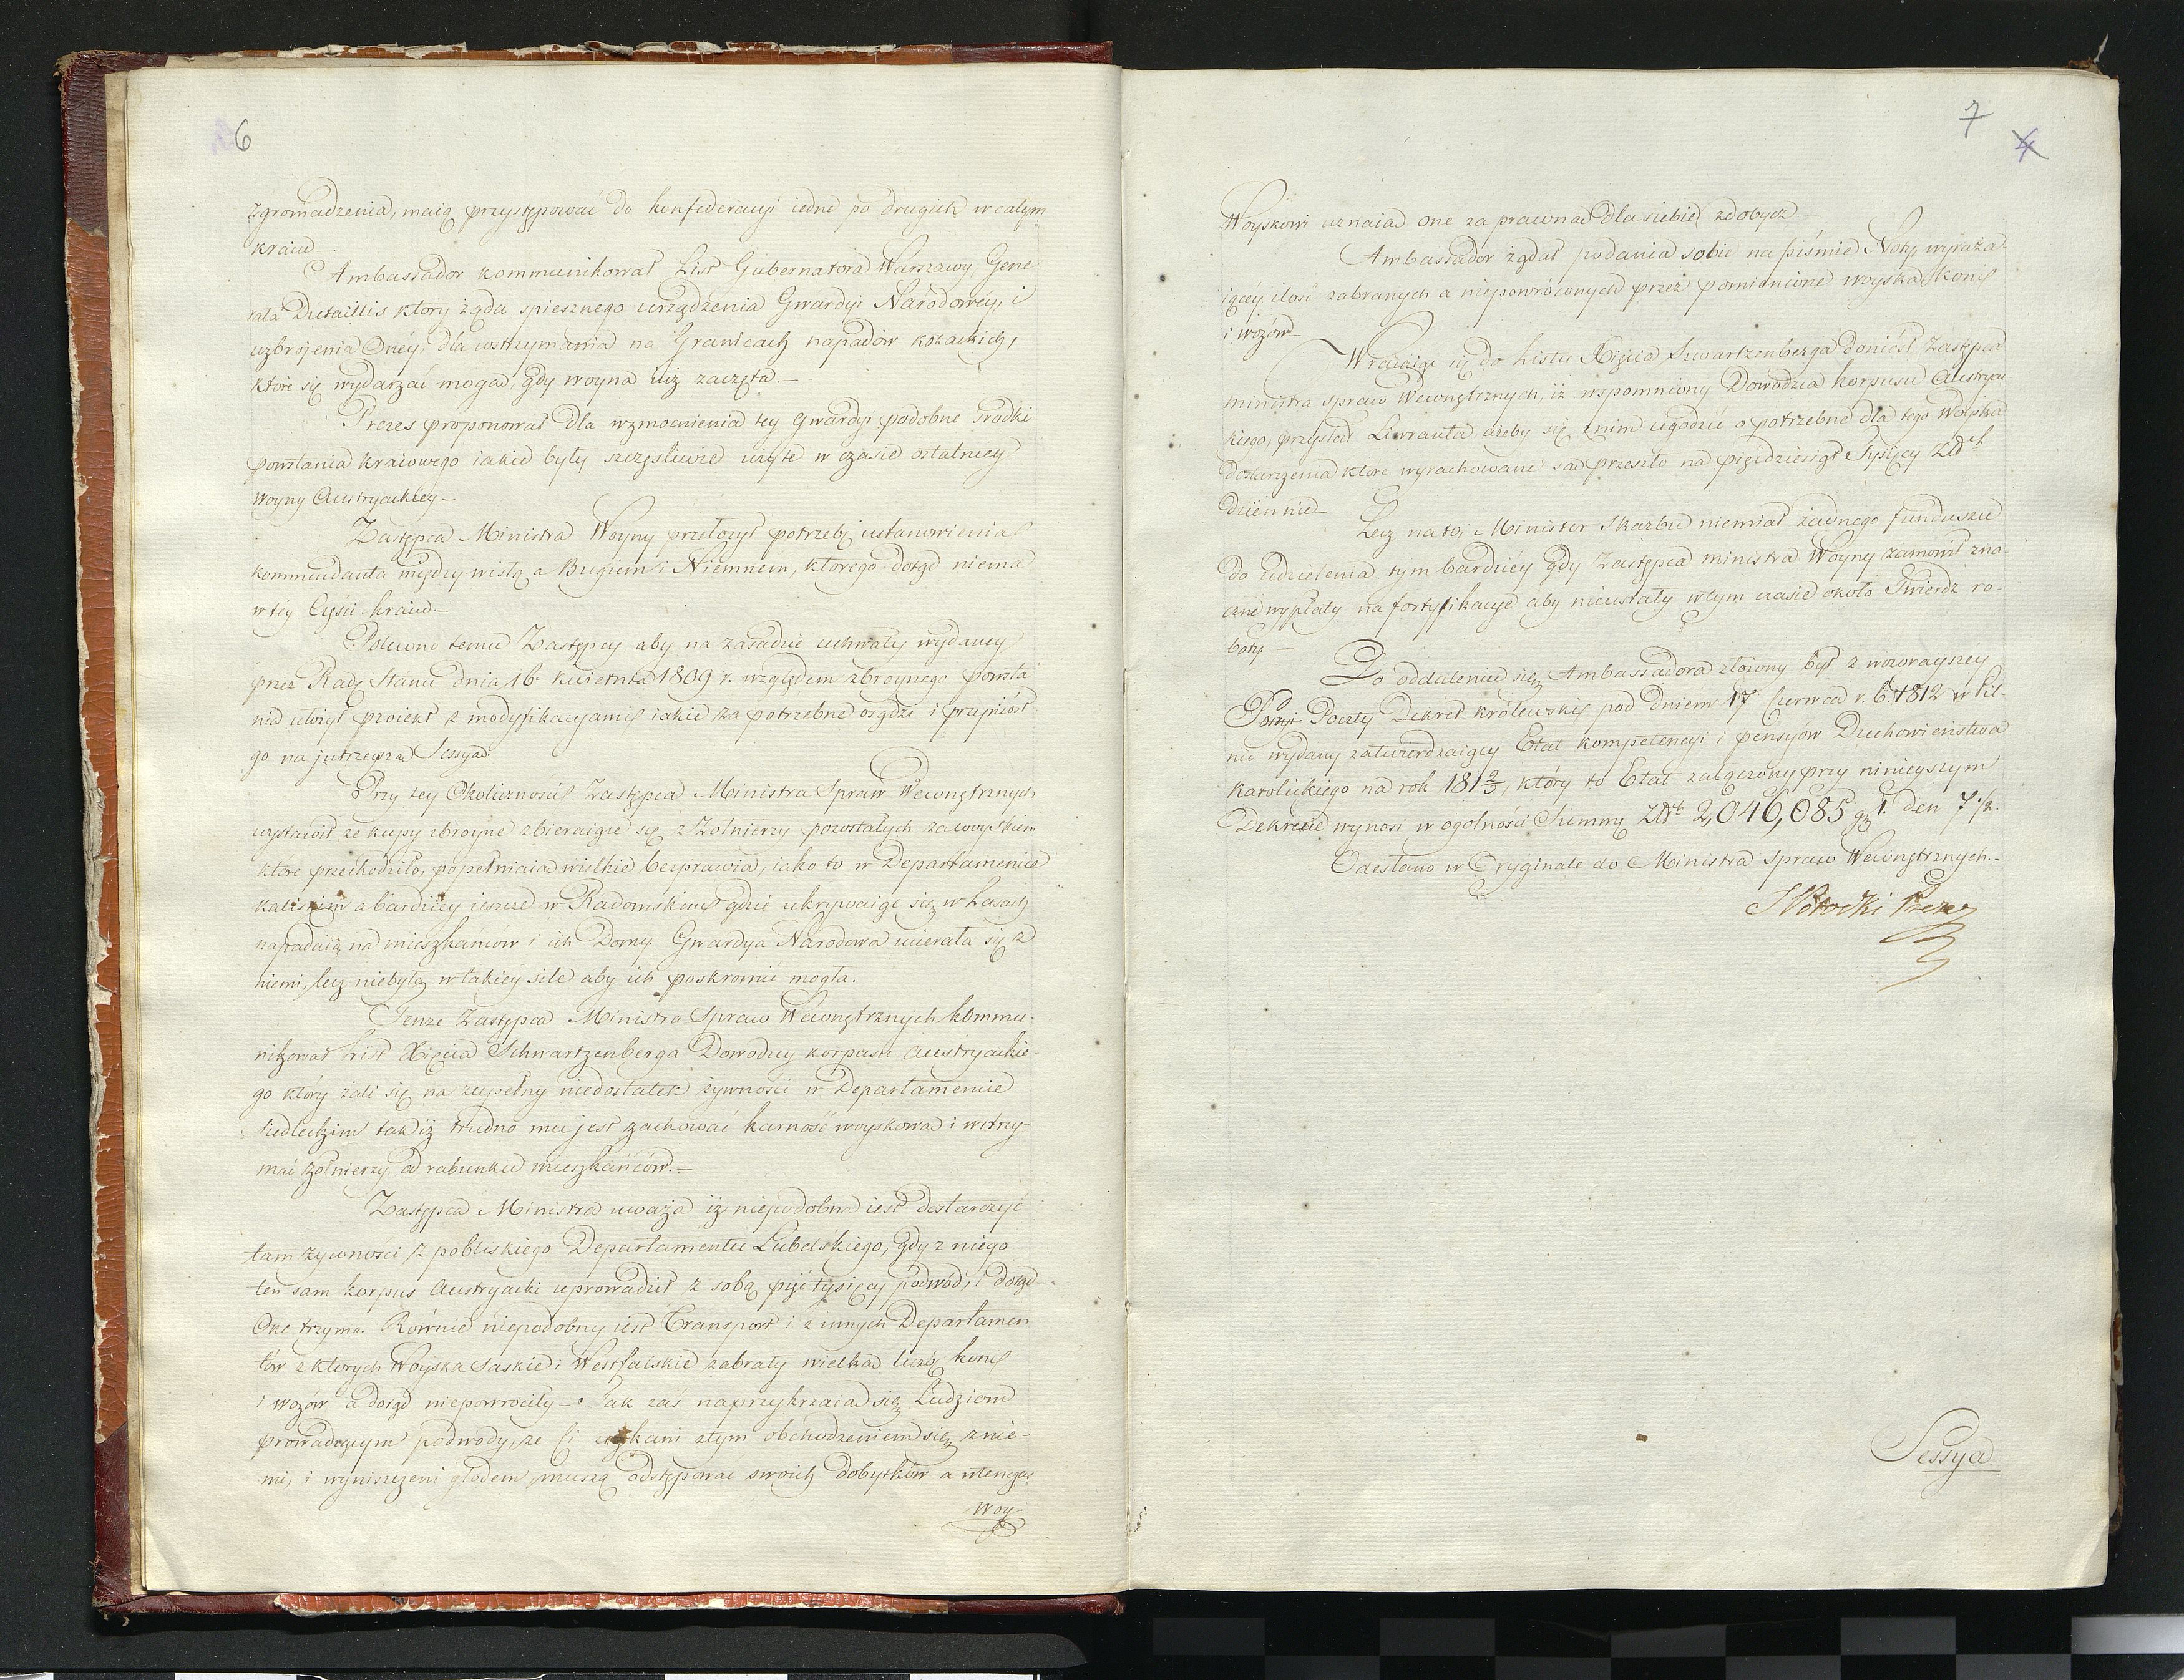 6
zgromadzenia, maią przystępować do konfederacyi iedne po drugich w całym
kraiu —
Ambassador kommunikował List Gubernatora Warszawy Gene
rała Dutaillis który żąda spiesznego urządzenia Gwardyi Narodowéy, i
uzbrojenia Onéy, dla wstrzymania na Granicach napadów kozackich,
które się wydarzać mogą, gdy woyna iuż zaczęta. —
Prezes proponował dla wzmocnienia tey Gwardyi podobne środki
powstania kraiowego iakie były szczęśliwie użyte w czasie ostatniey
woyny Austryackiey —
Zastępca Ministra Woyny przełożył potrzebę ustanowienia
kommendanta między wisłą a Bugiem i Niemnem, którego dotąd niema
w téy Części kraiu —
Polecono temu Zastępcy aby na zasadzie uchwały wydaney
przez Radę Stanu dnia 16. kwietnia 1809 r. względem zbroynego powsta
nia ułożył proiekt z modyfikacyami iakie za potrzebne osądzi i przyniósł
go na jutrzeyszą Sessyą.
Przy tey Okoliczności Zastępca Ministra Spraw Wewnętrznych,
wystawił że kupy zbroyne zbieraiące się z Żołnierzy pozostałych za woyskiem
które przechodziło, popełniaią wielkie bezprawia, iako to w Departamencie
kaliskim a bardziey ieszcze w Radomskim gdzie ukrywaiąc się w Lasach
napadaią na mieszkańców i ich Domy. Gwardya Narodowa ucierała się z
niemi, lecz niebyła w takiey sile aby ich poskromić mogła.
Tenże Zastępca Ministra Spraw Wewnętrznych kommu-
nikował List Xięcia Schwartzenberga Dowodzcy korpusu austryackie-
go który żali się na zupełny niedostatek żywności w Departamencie
siedleckim tak iż trudno mu jest zachować karność woyskową i wstrzy-
mać żołnierzy od rabunku mieszkańców. —
Zastępca Ministra uważa iż niepodobna iest dostarczyć
tam żywności z pobliskiego Departamentu Lubelskiego, gdy z niego
ten sam korpus Austryacki uprowadził z sobą pięć tysięcy podwód, i dotąd
One trzyma. Równie niepodobny iest Transport i z innych Departamen
tów z których Woyska Saskie i Westfalskie zabrały wielką liczbę koni
i wozów a dotąd niepowróciły — Tak zaś naprzykrzaią się Ludziom
prowadzącym podwody, że Ci uciskani złym obchodzeniem się z nie-
mi, i wyniszczeni głodem, muszą odstępować swoich dobytków a wtenczas
Woy-
7
4
Woyskowi uznaią one za prawną dla siebie zdobycz —
Ambassador żądał podania sobie na piśmie Noty wyraża
iącéy ilość zabranych a niepowróconych przez pomienione woyska koni
i wozów —
Wracaiąc się do Listu Xięcia Szwartzenberga doniósł Zastępca
ministra spraw Wewnętrznych, iż wspomniony Dowodzca korpusu Austryac
kiego, przysłał Liwranta ażeby się z nim ugodzić o potrzebne dla tego Woyska
dostarczenia które wyrachowane są przeszło na pięćdziesiąt Tysięcy Złch
dziennie —
Lecz na to, Minister Skarbu niemiał żadnego funduszu
do udzielenia tym bardziéy gdy Zastępca ministra Woyny zamówił zna-
czne wypłaty na fortyfikacye aby nieustały w tym czasie około Twierdz ro-
boty —
Po oddaleniu się Ambassadora złożony był z wczorayszey
Poczty Dekret królewski pod Dniem 17 Czerwca r. b. 1812 w Pil-
nic wydany zatwierdzaiący Etat kompetencyi i pensyów Duchowieństwa
Katolickiego na rok 181 2/3, który to Etat załączony przy ninieyszym
Dekrecie wynosi w ogólności Summę Złch 2,046,085 gr 1. den 7 1/2.
Odesłano w Oryginale do Ministra spraw Wewnętrznych. —
S Potocki Prezes
Sessya